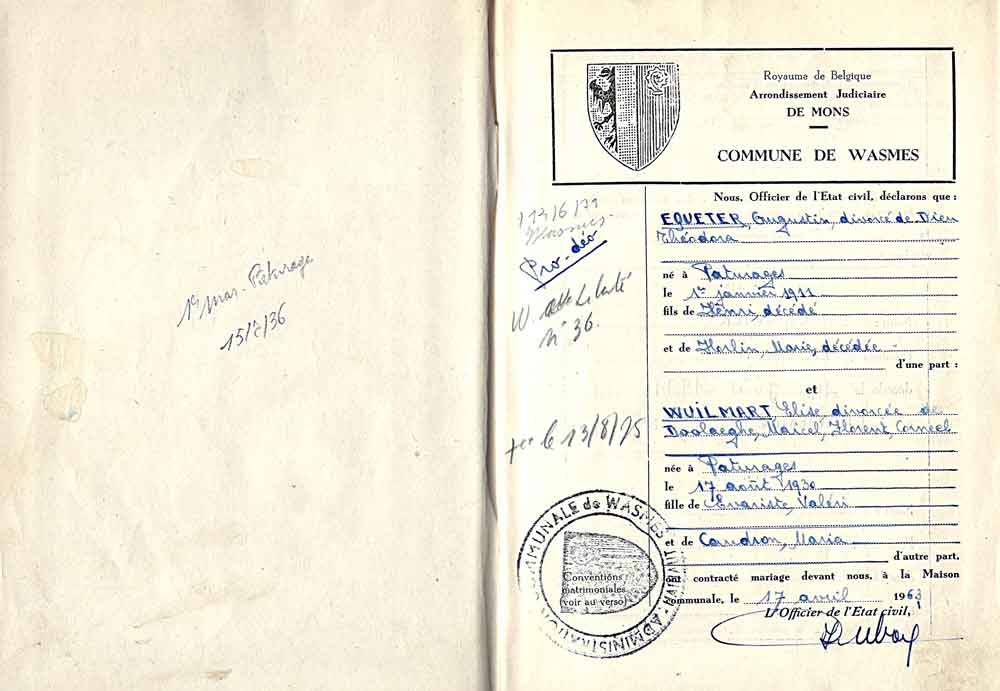 1r mar. Pâturage
15/ /36
Royaume de Belgique
Arrondissement Judiciaire
DE MONS
COMMUNE DE WASMES
Nous, Officier de l'Etat civil, déclarons que :
EQUETER, Augustin, divorcé de Dieu
Théodora
né à Paturages
le 1er janvier 1911
fils de Henri, décédé
et de Horlin, Marie, décédée -
d'une part :
et
WUILMART, Elise, divorcée de
Doolaeghe, Marcel, Florent, Corneel
née à Paturages
le 17 août 1930
fille de Evariste, Valéri
et de Caudron, Maria
d'autre part,
ont contracté mariage devant nous, à la Maison
communale, le 17 avril 1963
L'Officier de l'Etat civil,
13/6/
Wasmes
Pro-déo
W.
N° 36.
le 13/8/75
ADMINISTRATION COMMUNALE de WASMES
HAINAUT
Conventions
matrimoniales
(voir au verso)